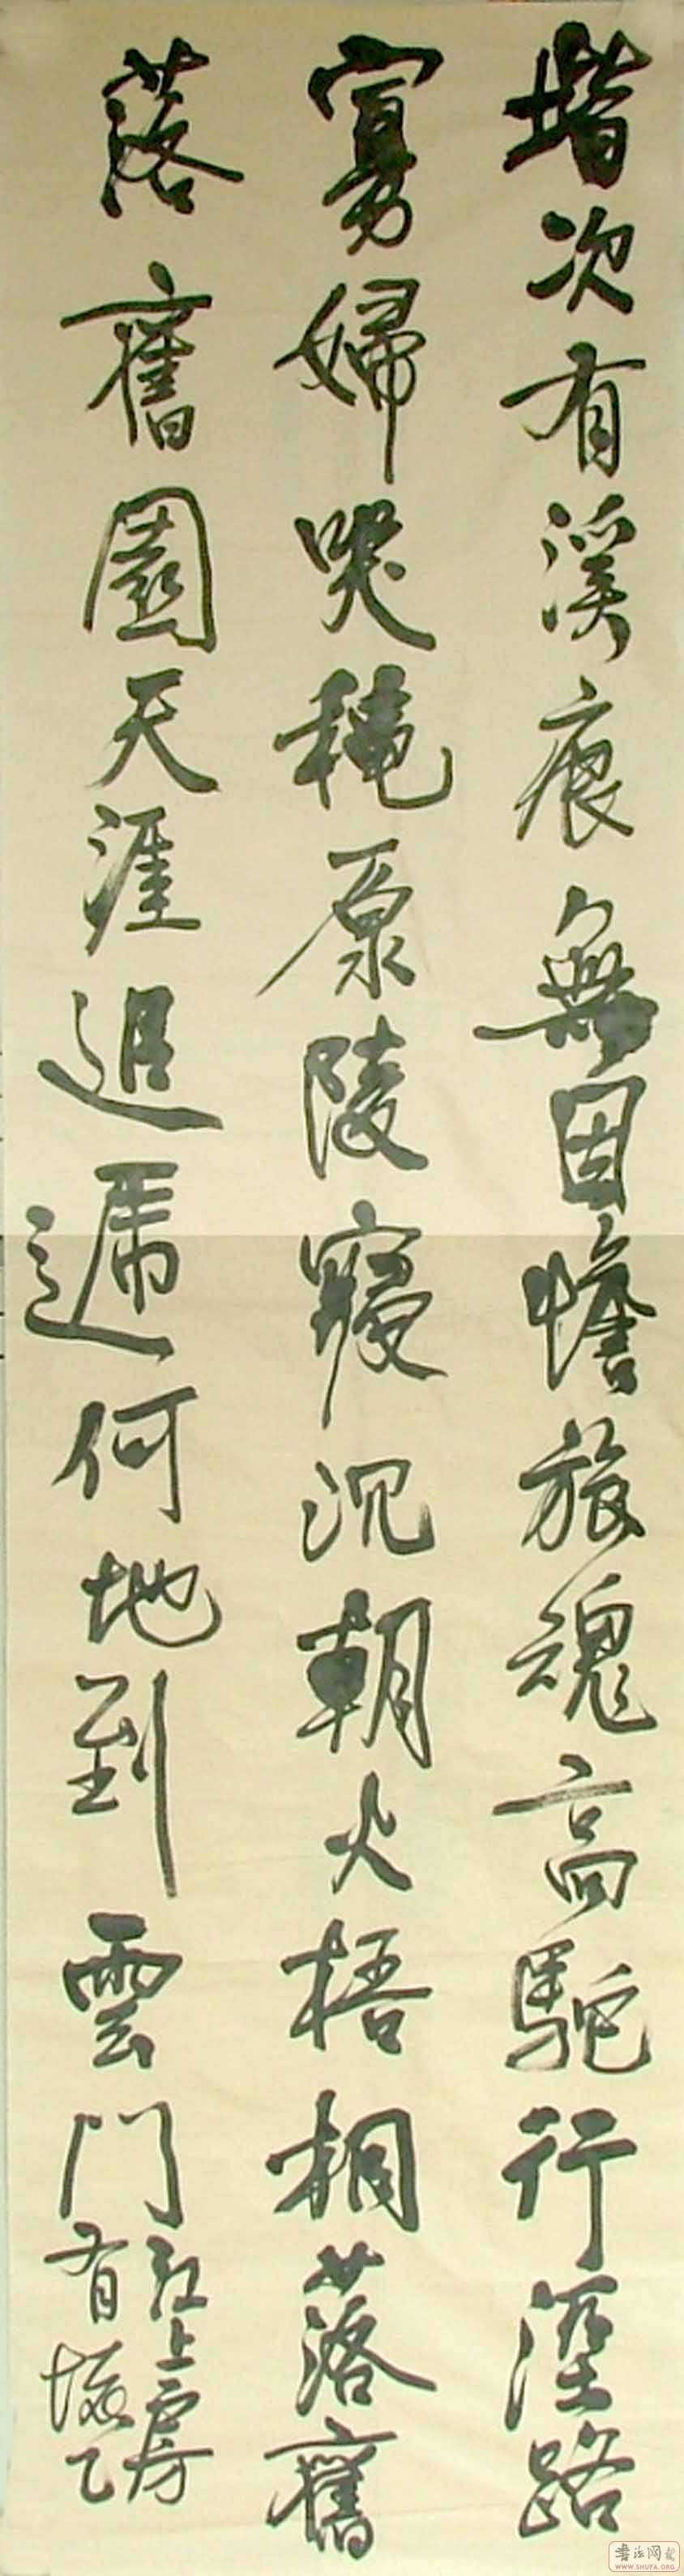 堦次有溪痕無因憺旅魂高駝行溼路
寡婦哭穐原陵寢沉朝火梧桐落舊
落舊園天涯遞何地到雲門
上房
有
書法网
WWW.SHUFA.ORG